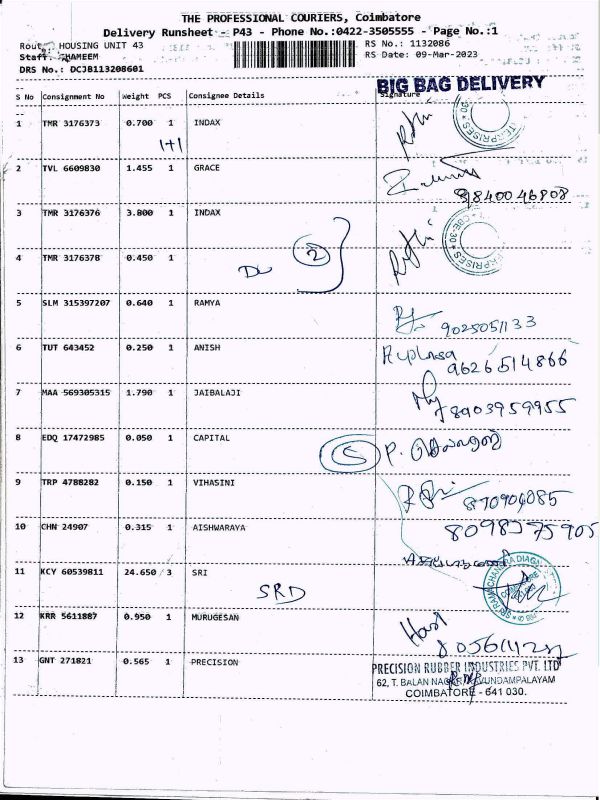 THE PROFESSIONAL COURIERS, Coimbatore
Delivery Runsheet - P43 - Phone No.:0422-3505555 - Page No.:1
HOUSING UNIT 43
RS No.: 1132086
RS Date: 09-Mar-2023
DRS No.: DCJB113208601
BIG BAG DELIVERY
S No Consignment No Weight PCS Consignee Details Signature
1 TMR 3176373 0.700 1 INDAX
1+1
2 TVL 6609830 1.455 1 GRACE
9840046808
3 TMR 3176376 3.800 1 INDAX
4 TMR 3176378 0.450 1
2
5 SLM 315397207 0.640 1 RAMYA
9025051133
6 TUT 643452 0.250 1 ANISH
9626514866
7 MAA 569305315 1.790 1 JAIBALAJI
8903959955
8 EDQ 17472985 0.050 1 CAPITAL
5
9 TRP 4788282 0.150 1 VIHASINI
10 CHN 24907 0.315 1 AISHWARAYA
8098375905
11 KCY 60539811 24.650 3 SRI
SRD
12 KRR 5611887 0.950 1 MURUGESAN
13 GNT 271821 0.565 1 PRECISION
PRECISION RUBBER INDUSTRIES PVT. LTD
62, T. BALAN NAGAR, KAVUNDAMPALAYAM
COIMBATORE - 641 030.